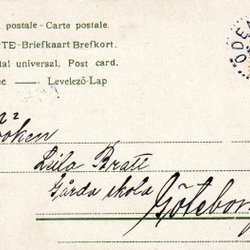 postale - Carte postale.
TE-Briefkaart Brefkort.
tal universal. Post card.
Levelező-Lap
ÖDE
Leila Bratt
Gårda skola
Götebor